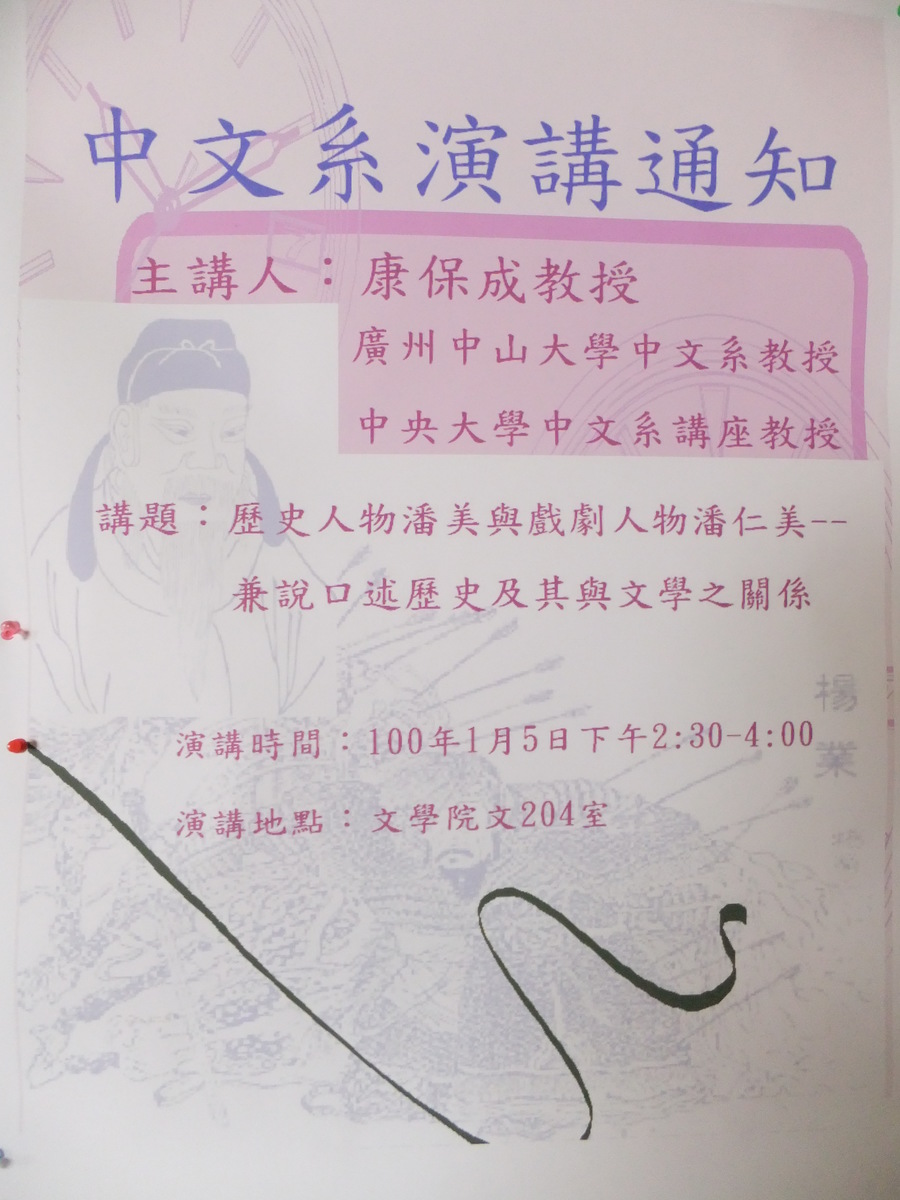 中文系演講通知
主講人：康保成教授
廣州中山大學中文系教授
中央大學中文系講座教授
講題：歷史人物潘美與戲劇人物潘仁美--
兼說口述歷史及其與文學之關係
楊業
演講時間：100年1月5日下午2:30-4:00
演講地點：文學院文204室